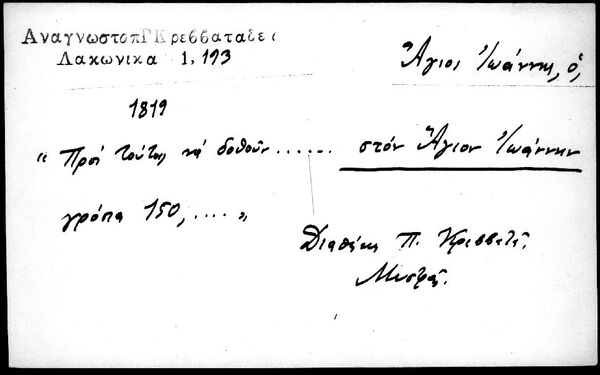 ΑναγνωστοπΡΚρεββαταδες
Λακωνικα 1, 193
Ἅγιος Ἰωάννης, ὁ,
1819
"Πρὸς τούτοις νά δοθοῦν ...... στόν Ἅγιον Ἰωάννην
γρόσα 150, .... "
Διαθήκη Π. Κρεββατᾶ.
Μυστρᾶς.